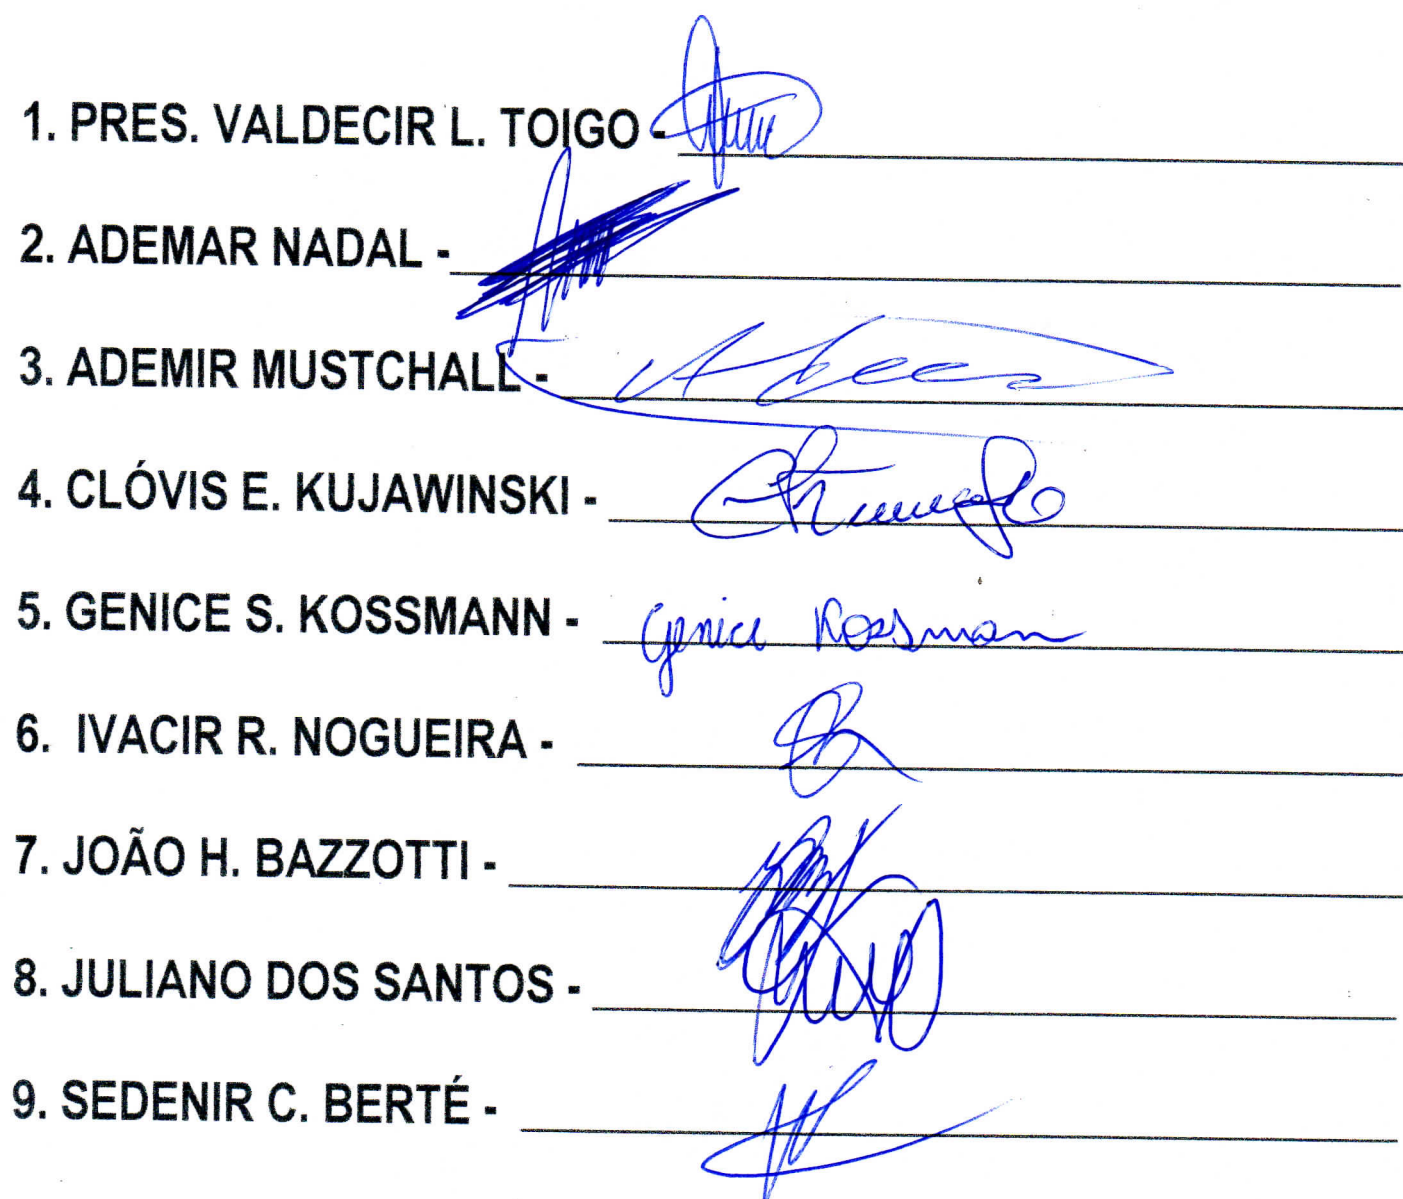 1. PRES. VALDECIR L. TOIGO -
2. ADEMAR NADAL -
3. ADEMIR MUSTCHALL -
4. CLÓVIS E. KUJAWINSKI -
5. GENICE S. KOSSMANN - Genice Kossmann
6. IVACIR R. NOGUEIRA -
7. JOÃO H. BAZZOTTI -
8. JULIANO DOS SANTOS -
9. SEDENIR C. BERTÉ -